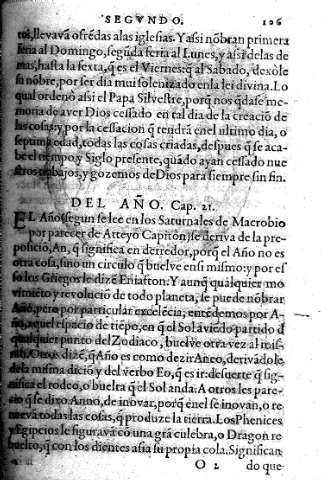 SEGVNDO. 106
tos, llevavā ofrēdas alas iglesias. Y assi nōbran primera
feria al Domingo, segūda feria al Lunes, y assi delas de
mas, hasta la sexta, q̄ es el Viernes: q̄ al Sabado, dexòle
su nōbre, por ser dia mui solenizado enla lei divina. Lo
qual ordenò assi el Papa Silvestre, porq̄ nos q̄dase me-
moria de aver Dios cessado en tal dia de la creaciō de
las cosas: y por la cessacion q̄ tendrà enel ultimo dia, o
septima edad, todas las cosas criadas, despues q̄ se aca-
be el tiempo, y Siglo presente, quādo ayan cessado nue
stros trabajos, y gozemos de Dios para siempre sin fin.
DEL AÑO. Cap. 21.
EL Año (segun se lee en los Saturnales de Macrobio
por parecer de Atteyo Capitōn) se deriva de la pre-
posiciō, An, q̄ significa en derredor, porq̄ el Año no es
otra cosa, sino un circulo q̄ buelve ensi mismo: y por es
so los Griegos le dizē Eniaston: Y aunq̄ qualquier mo
vimiēto y revoluciō de todo planeta, se puede nōbrar
Año, pero por particular excelēcia, entēdemos por A-
ño, aquel espacio de tiēpo, en q̄ el Sol aviēdo partido d̄
qualquier punto del Zodiaco, buelve otra vez al mis-
mo. Otros dizē, q̄ Año es como dezir Aneo, derivādole
dela misma diciō y del verbo Eo, q̄ es ir: desuerte q̄ sig-
nifica el rodeo, o buelta q̄ el Sol anda: A otros les pare-
cio q̄ se dixo Anno, de inovar, porq̄ enel se inovan, o re
nueva todas las cosas, q̄ produze la tierra. Los Phenices
y Egipcios le figuravā cō una grā culebra, o Dragon re
buelto, q̄ con los dientes asia su propia cola. Significan
O 2 do que